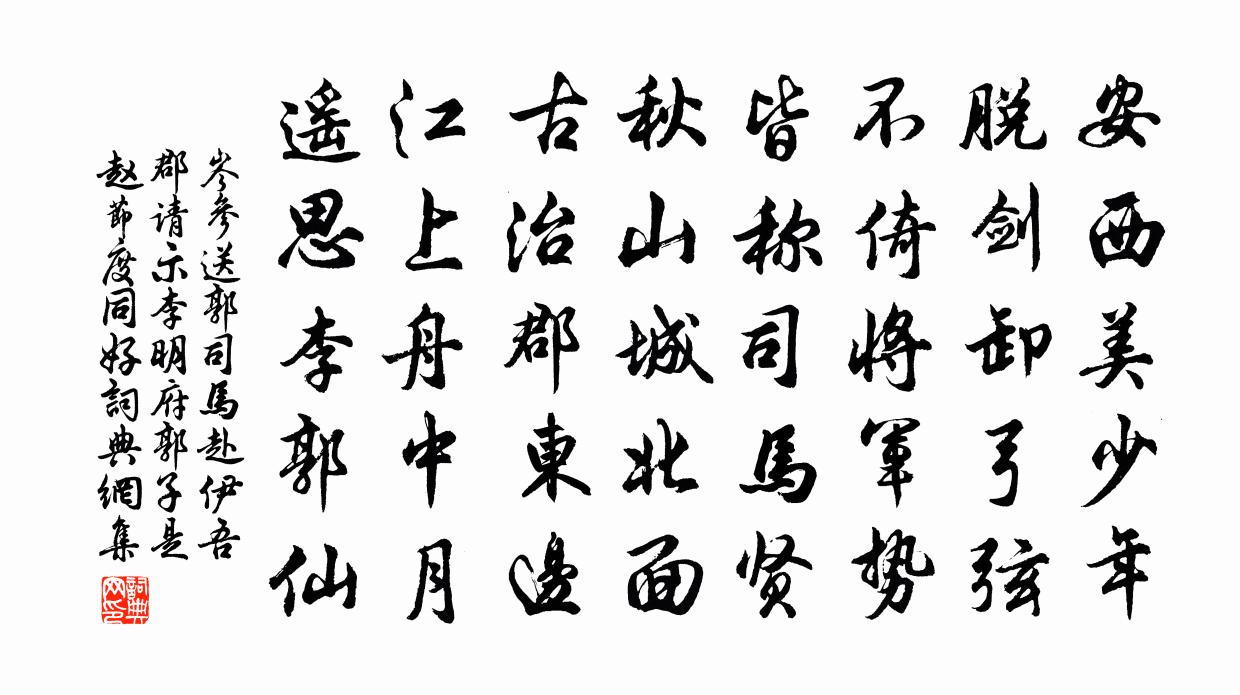 安西美少年
脱剑卸弓弦
不倚将军势
皆称司馬贤
秋山城北面
古治郡東邊
江上舟中月
遥思李郭仙
岑參送郭司馬赴伊吾
郡请示李明府郭子是
赵節度同好詞典網集
詞典
网印